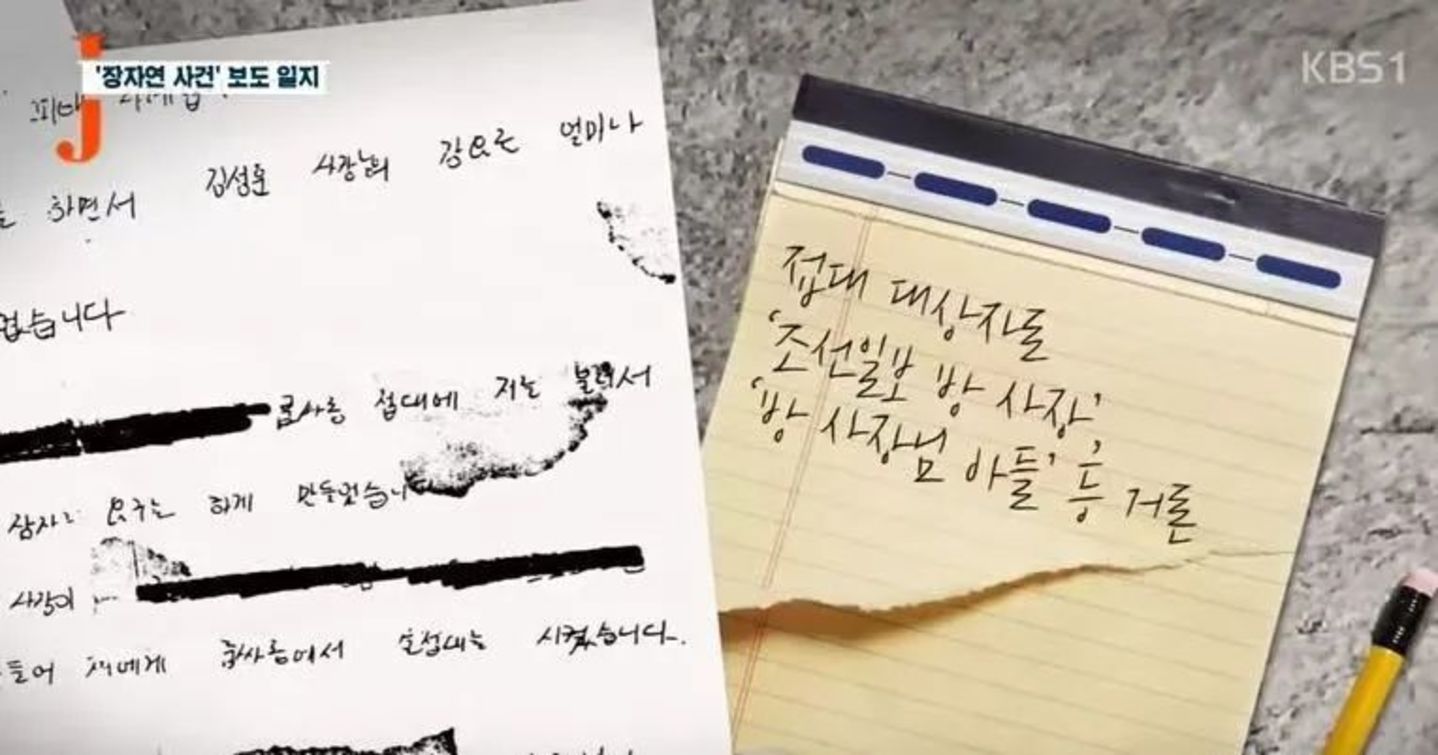 '장자연 사건' 보도 일지
KBS1
하면서 김성훈 사장님의 강요로 얼마나
었습니다
룸사롱 접대에 저를 불러서
요구를 하게 만들었습니
사장이
들어 저에게 룸사롱에서 술접대를 시켰습니다.
접대 대상자를
'조선일보 방 사장',
'방 사장님 아들' 등 거론